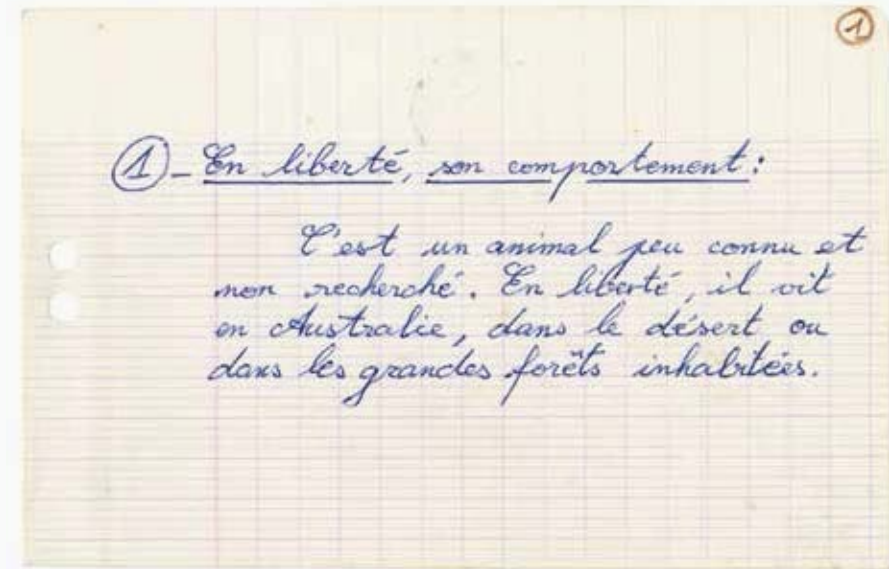 1
1 - En liberté, son comportement :
C'est un animal peu connu et
non recherché. En liberté, il vit
en Australie, dans le désert ou
dans les grandes forêts inhabitées.